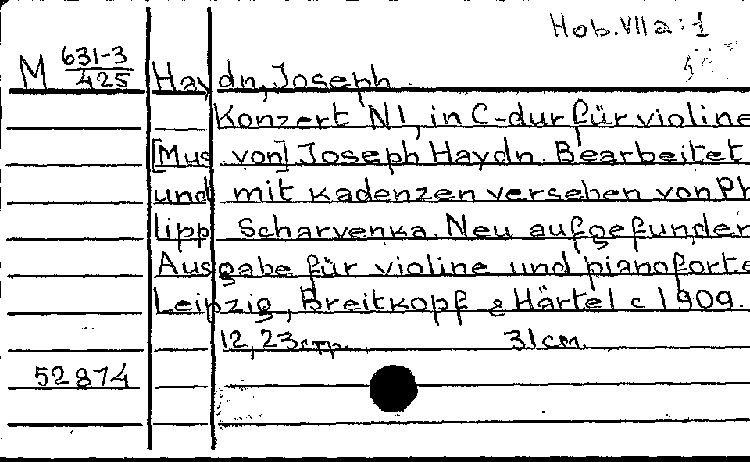 Hob. VII a: 1
M 631-3/425 Haydn, Joseph.
Konzert N1, in C-dur für violine
[Mus von] Joseph Haydn. Bearbeitet
und mit Kadenzen versehen von Ph
lipp Scharvenka. Neu aufgefunden
Ausgabe für violine und pianoforte
Leipzig, Breitkopf & Härtel c 1909.
12, 23 стр. 31 cm.
52874